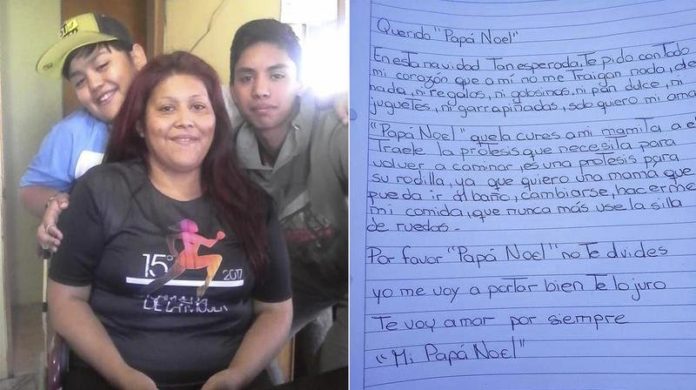 15°
2017
Querido "Papá Noel"
En esta navidad Tan esperada, Te pido con todo
mi corazón que a mí no me Traigan nada, de
nada, ni regalos, ni gobsinas, ni pan dulce, ni
juguetes, ni garrapiñadas, solo quiero mi
"Papá Noel" que la cures a mi mamita a e
Traele la protesis que necesita para
volver a caminar, es una protesis para
su rodilla, ya que quiero una mama que
pueda ir al baño, cambiarse, hacerme
mi comida, que nunca más use la silla
de ruedas.
Por favor "Papá Noel" no Te olvides
yo me voy a portar bien Te lo juro
Te voy amar por siempre
"Mi Papá Noel"